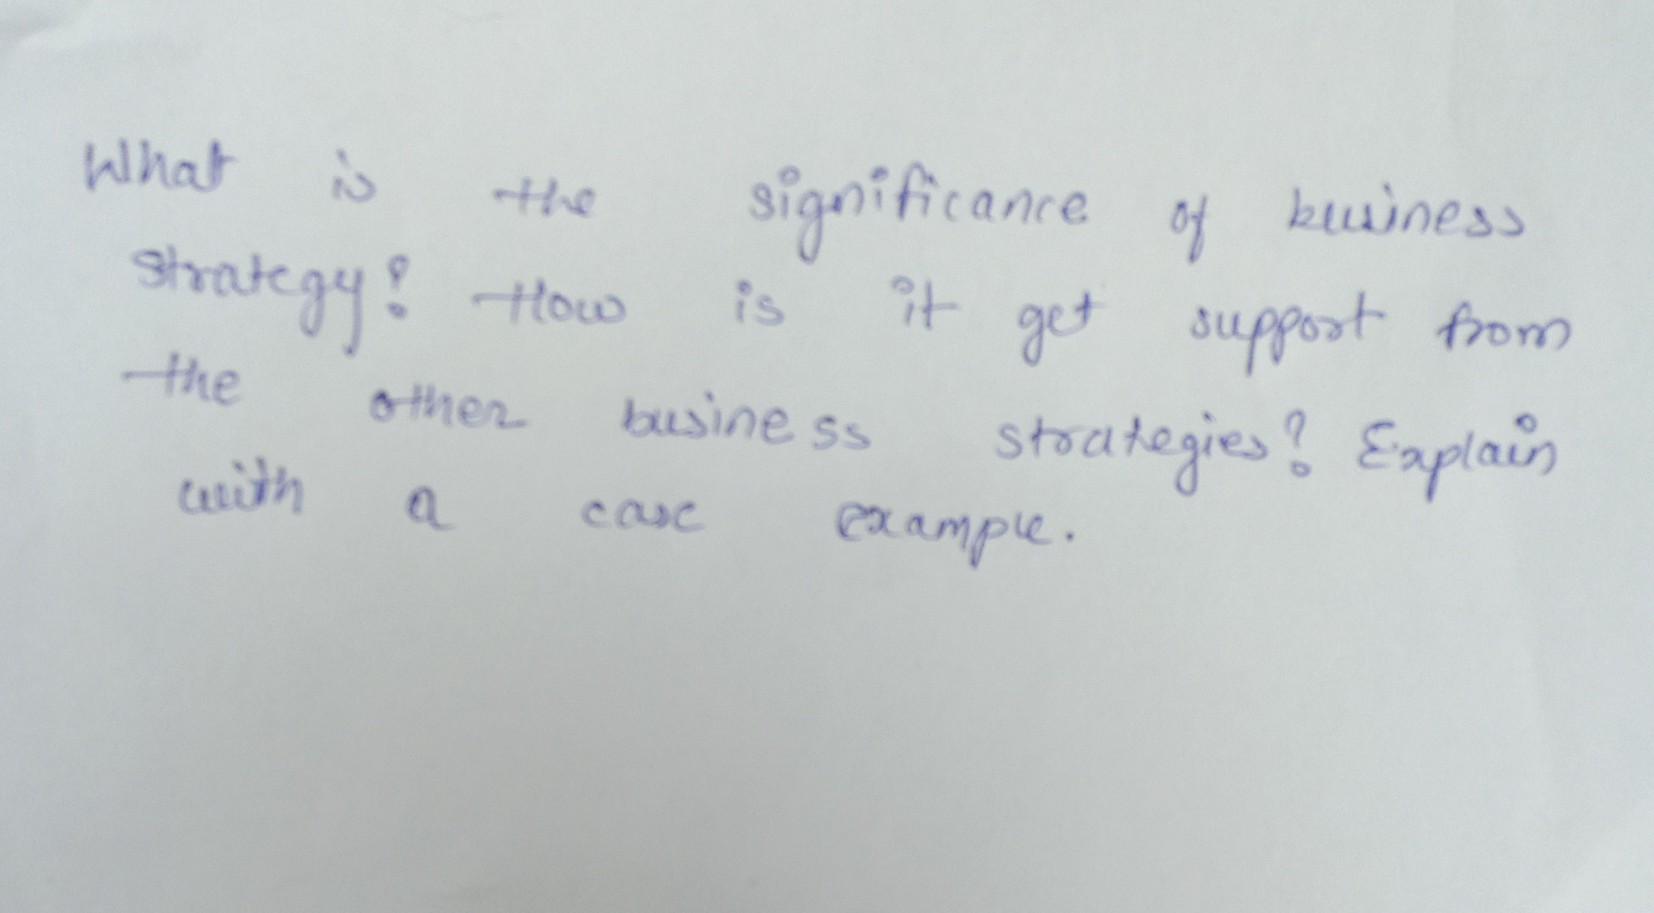 What is the significance of business
strategy? How is it get support from
the other business strategies? Explain
with a case example.